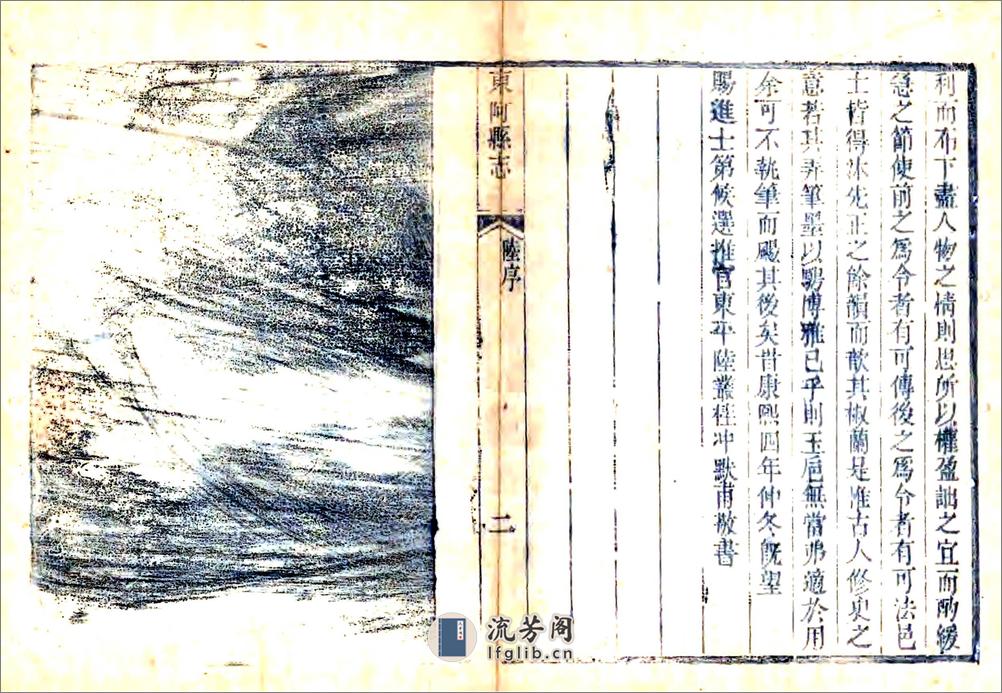 利而布下盡人物之情則思所以權盈詘之宜而酌緩
急之節使前之為令者有可傳後之為令者有可法邑
士皆得沐先正之餘韻而歆其椒蘭是惟古人修史之
意若其弄筆墨以騁博雅已乎則玉巵無當弗適於用
余可不執筆而颺其後矣昔康熙四年仲冬旣望
賜進士第候選推官東平陸叢桂冲默甫敬書
東阿縣志
陸序
二
流芳阁
lfglib.cn